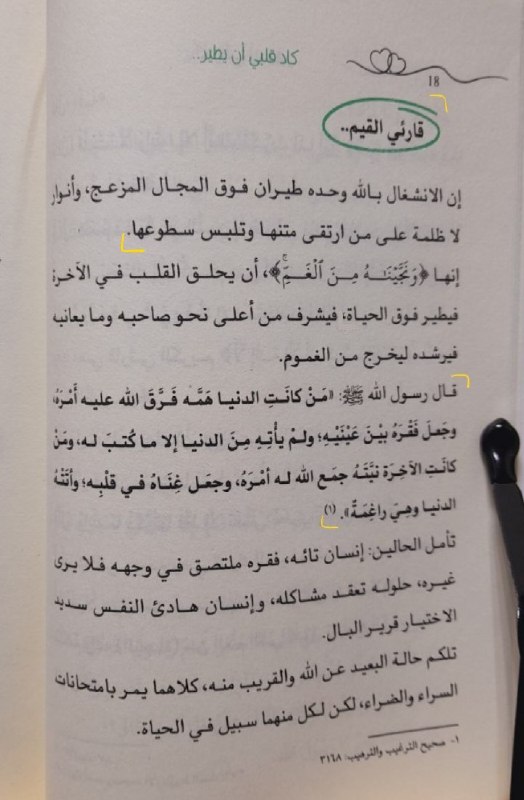 كاد قلبي أن يطير..
18
قارئي القيم..
إن الانشغال بالله وحده طيران فوق المجال المزعج، وأنوار
لا ظلمة على من ارتقى متنها وتلبس سطوعها.
إنها ﴿وَنَجَّيْنَاهُ مِنَ الْغَمِّ﴾، أن يحلق القلب في الآخرة
فيطير فوق الحياة، فيشرف من أعلى نحو صاحبه وما يعانيه
فيرشده ليخرج من الغموم.
قال رسول الله ﷺ: «مَنْ كانَتِ الدنيا هَمَّه فَرَّقَ الله عليه أَمْرَهُ،
وجَعلَ فَقْرَهُ بيْنَ عَيْنَيْهِ؛ ولمْ يأْتِه مِنَ الدنيا إلا ما كُتبَ له، ومَنْ
كانَتِ الآخِرَة نيَّتَه جمَع الله له أمْرَهُ، وجعَل غِنَاهُ في قلْبِه؛ وأتَتْهُ
الدنيا وهِيَ راغِمَةٌ». (١)
تأمل الحالين: إنسان تائه، فقره ملتصق في وجهه فلا يرى
غيره، حلوله تعقد مشاكله، وإنسان هادئ النفس سديد
الاختيار قرير البال.
تلكم حالة البعيد عن الله والقريب منه، كلاهما يمر بامتحانات
السراء والضراء، لكن لكل منهما سبيل في الحياة.
١- صحيح الترغيب والترهيب: ٣١٦٨